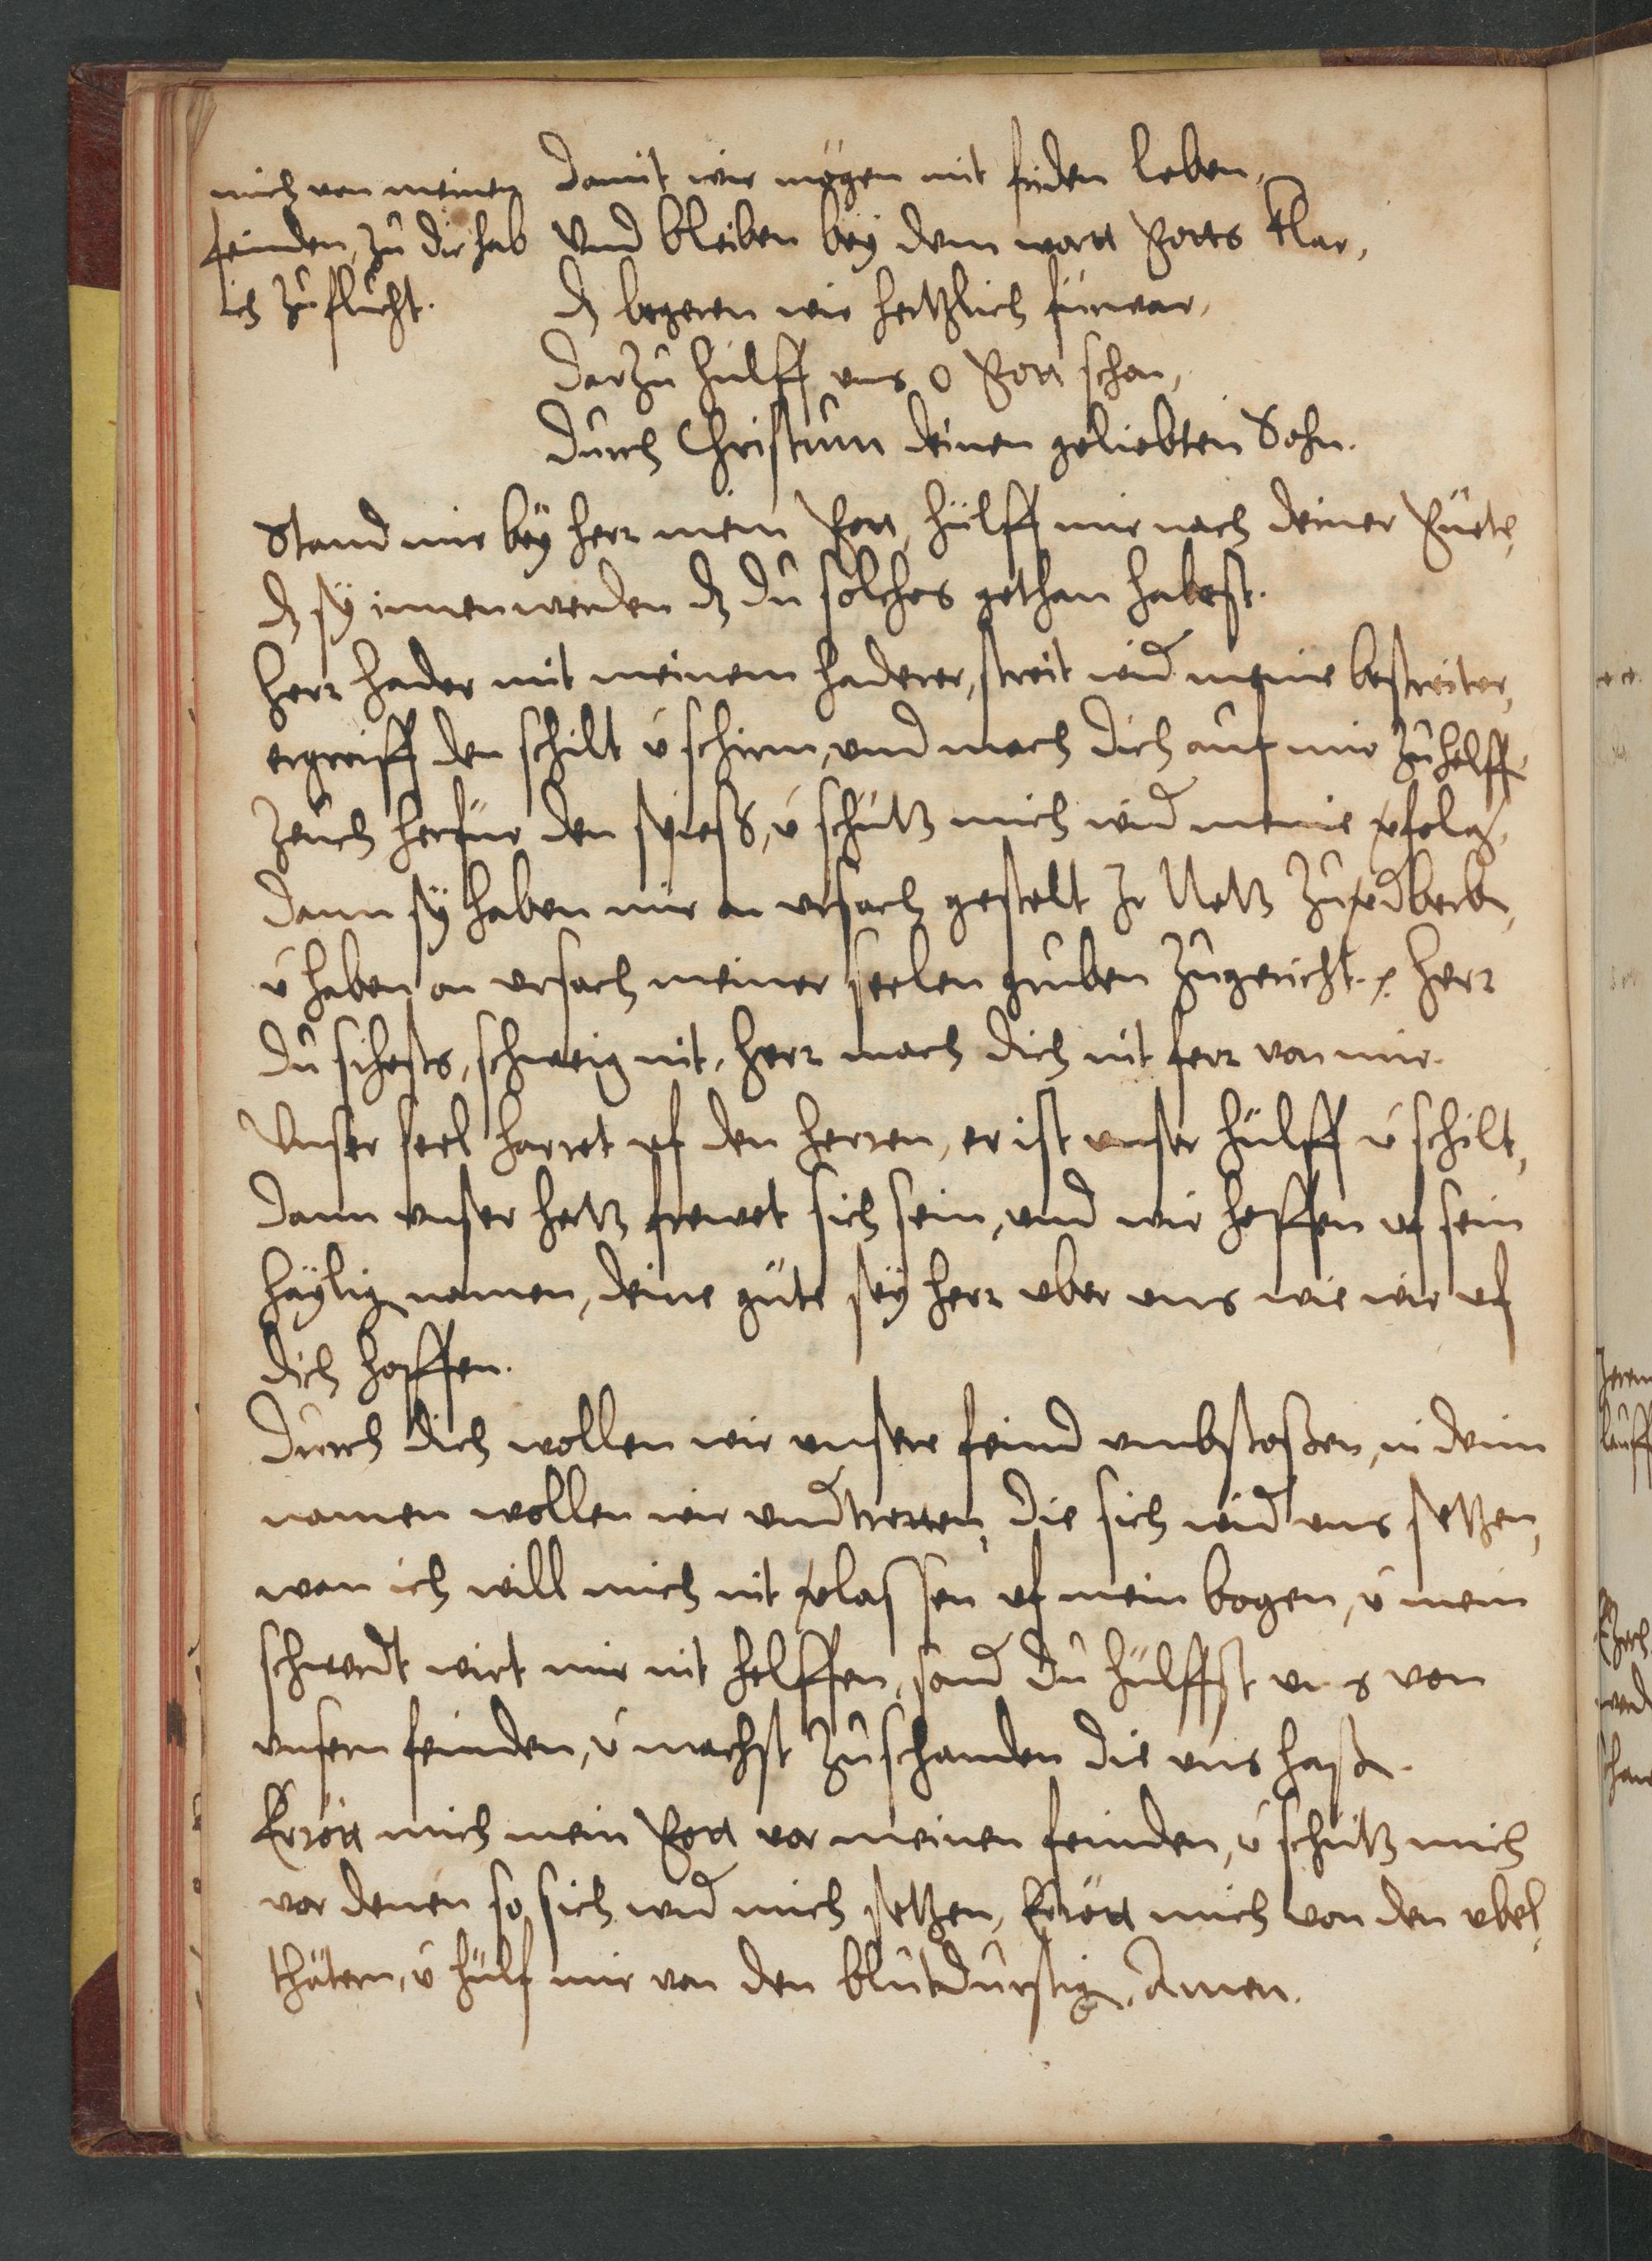 mich von meinen
feinden, zu dir hab
ich zuflucht.
Damit wir mögen mit friden leben,
Und bleiben bey dem wort Gotts klar,
dz begeren wir hertzlich fürwar,
Darzu hülff uns o Gott schon,
Durch Christum deinen geliebten Sohn.
Stand mir bey herr mein Gott, hülff mir nach deiner Güete,
dz sy innen werden dz du solches gethan habest.
Herr hader mit meinem haderer, streit wid meine bestreiter,
ergreiff den schilt u schirm, und mach dich auf mir zuhelff.
Zeuch herfür den spieß, u schütz mich wid meine vfolg,
Dann sy haben mir on ursach gestelt Ir Netz zuvdberb,
u haben on ursach meiner seelen gruben zugericht. Herr
du sihests, schweig nit, herr mach dich nit ferr von mir.
Unser seel harret uf den herren, er ist unser hülff u schilt,
Dann unser hertz frewet sich sein, und wir hoffen uf sein
häylig namen, deine güte sey herr uber uns wie wir uf
dich hoffen.
Durch dich wollen wir unsere feind umbstoßen, in deim
namen wollen wir undtretten, die sich wid uns setzen,
wan ich will mich nit vlassen uf mein bogen, u mein
schwerdt wirt mir nit helffen, sond du hülffst uns von
unsern feinden, u machst zuschanden die uns haß.
Errött mich mein Gott vor meinen feinden, u schütz mich
vor denen so sich wid mich setzen, Errött mich von den ubel,
thätern, u hülf mir von den blutdurstig. Amen.